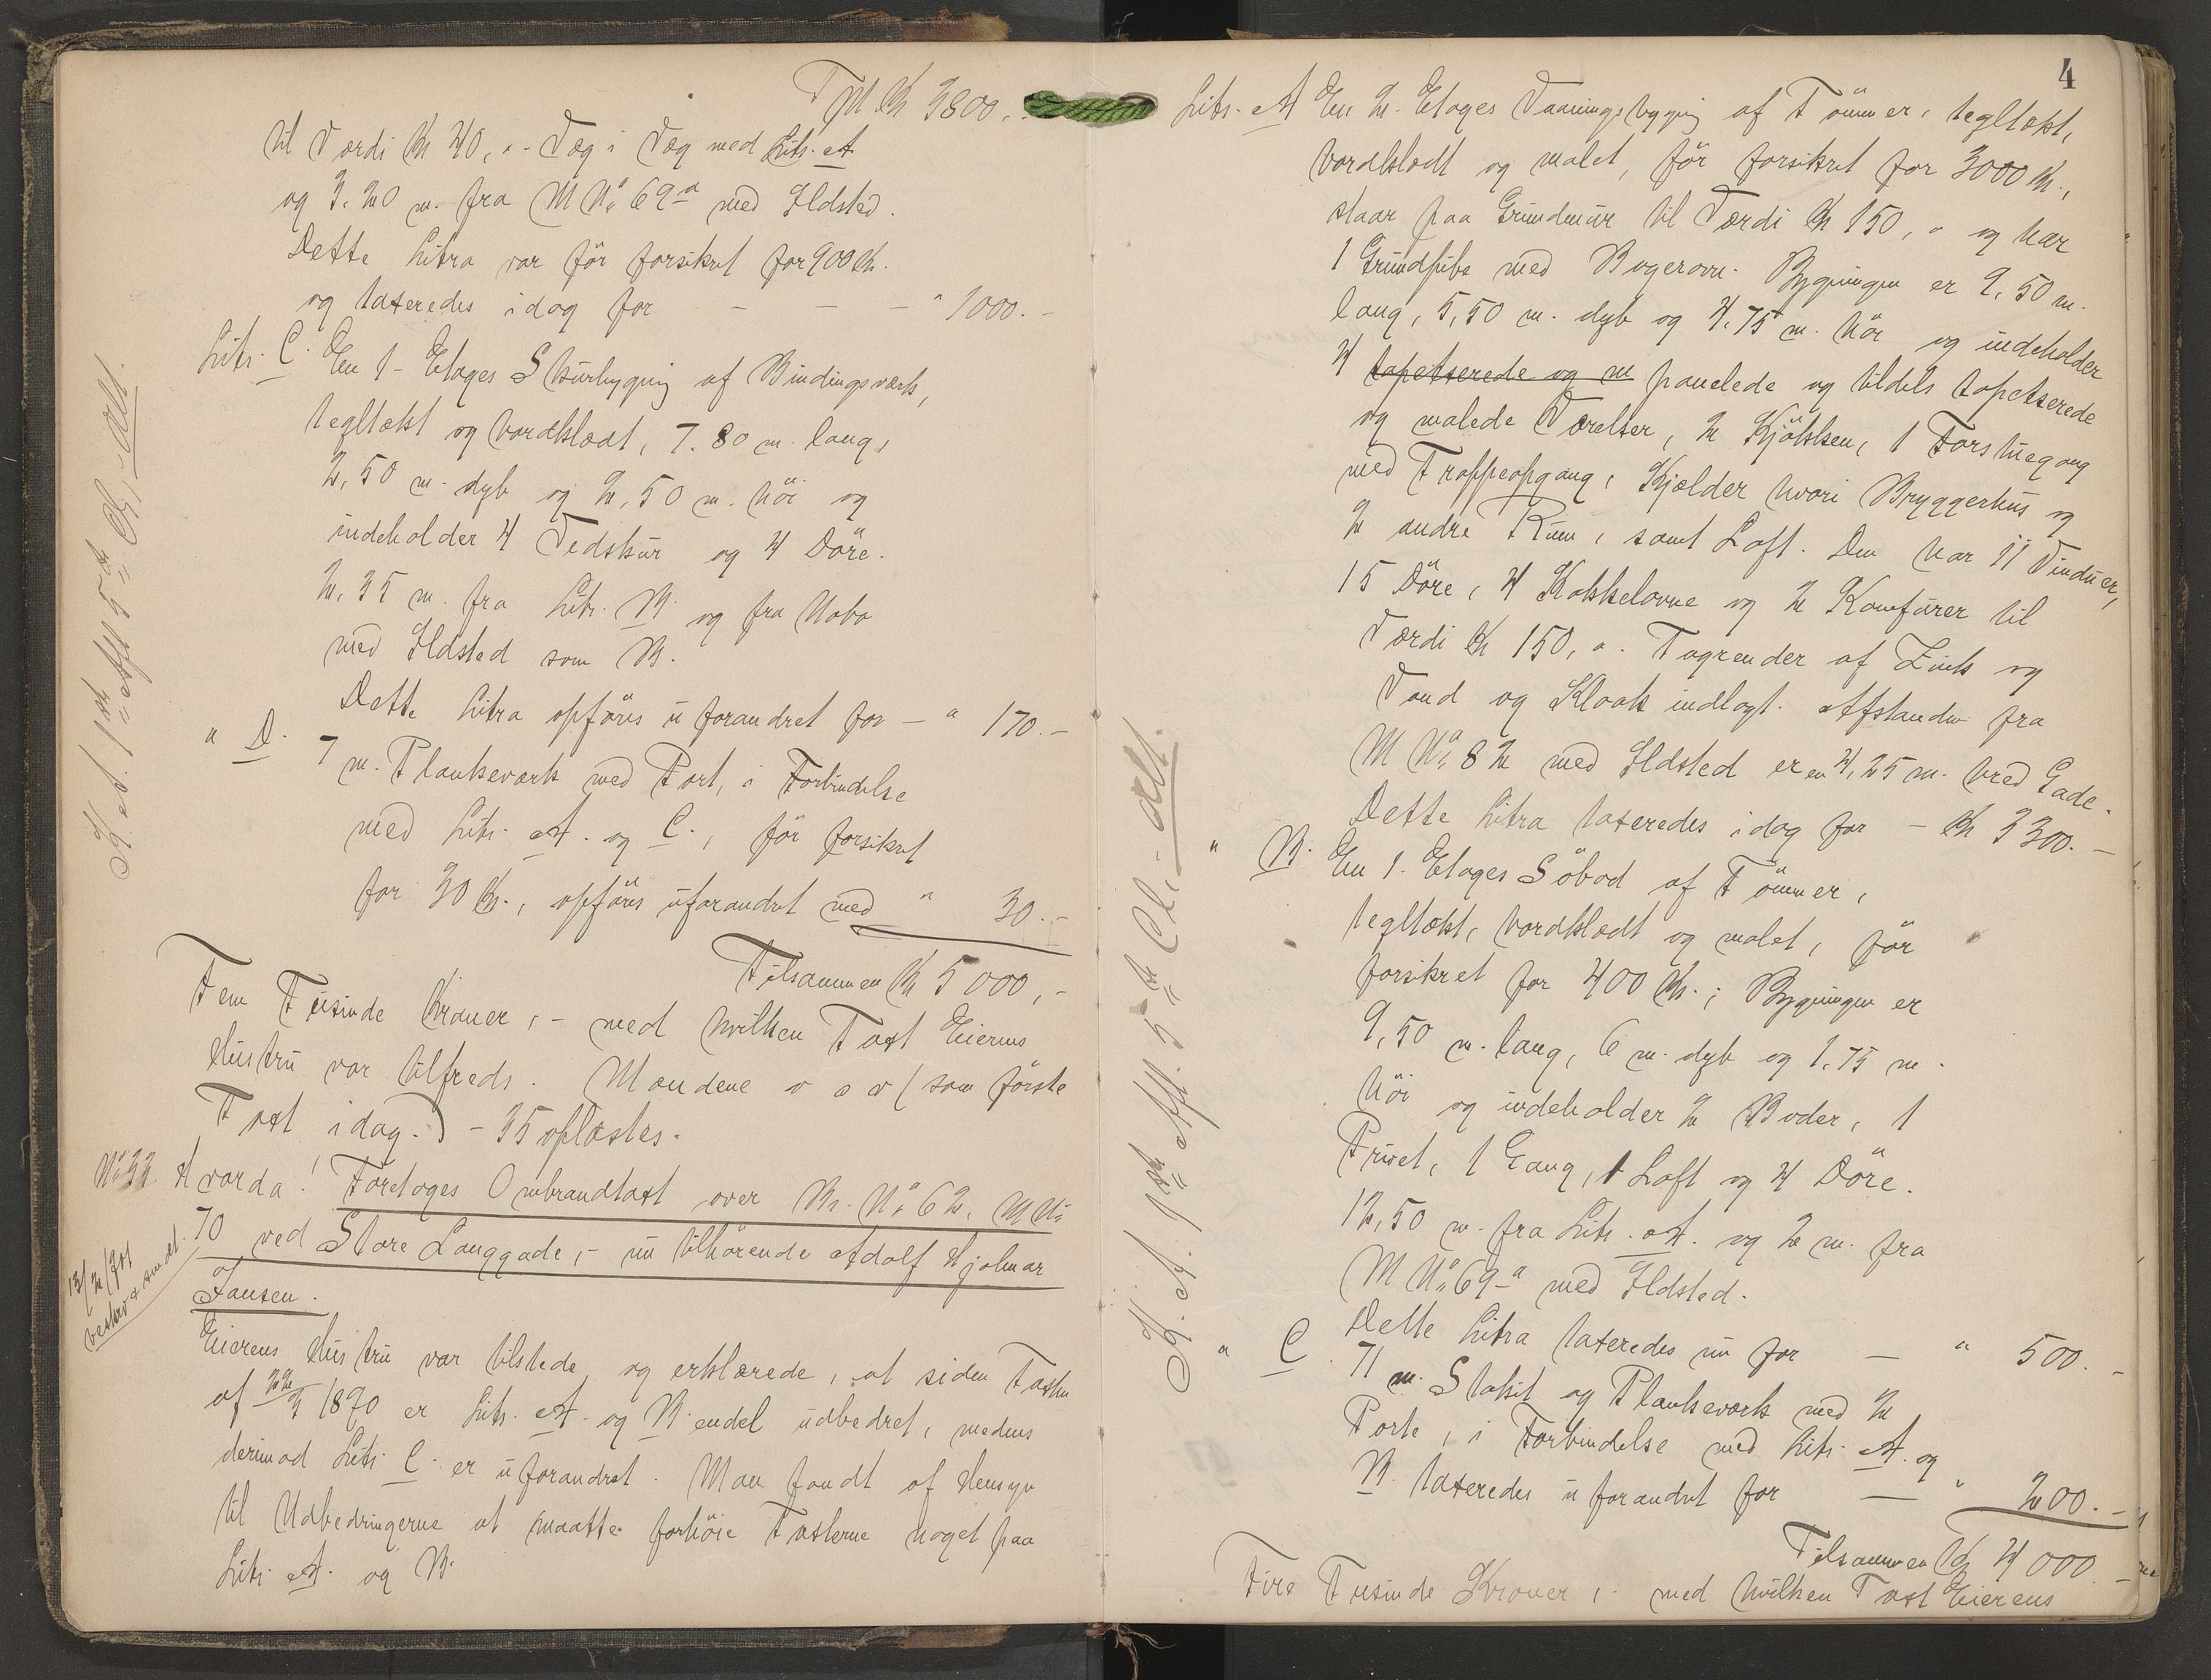 Tpt Kr 3800,-
til Værdi Kr 40,- Væg i Væg med Litr. A
og 3.20 m. fra M No 69a med Ildsted.
Dette Litra var før forsikret for 900 Kr.
og taxeredes idag for — — — " 1000.-
Litr. C. En 1-Etages Skurbygnig af Bindingsværk,
tegltækt og bordklædt, 7.80 m. lang,
2,50 m. dyb og 2,50 m. høi og
indeholder 4 Vedskur og 4 Døre.
2,35 m. fra Litr. B. og fra Nabo
med Ildsted som B.
Dette Litra opføres uforandret for — " 170.-
" D. 7 m. Plankeværk med Port, i Forbindelse
med Litr. A. og C., før forsikret
for 30 Kr., opføres uforandret med " 30.-
Tilsammen Kr 5000,-
Fem Tusinde Kroner,- med hvilken Taxt Eierens
Hustru var tilfreds. Mændene o s v (som første
Taxt idag.) - 35 oplæstes.
No 33 Hvorda! Foretoges Ombrandtaxt over Br. No 62, M No
70 ved Store Langgade,- nu tilhørende Adolf Hjalmar
Jansen.
13/2/01
beskr & smdt.
Eierens Hustru var tilstede og erklærede, at siden Taxten
af 22/3 1890 er Litr. A. og B. endel udbedret, medens
derimod Litr. C. er uforandret. Man fandt af Hensyn
til Udbedringerne at maatte forhøie Taxterne noget paa
Litr. A. og B.
K. A. 1ste Afd. 5te Cl,- alt.
4
Litr. A En 2. Etages Vaaningsbygnig af Tømmer, tegltækt,
bordklædt og malet, før forsikret for 3000 Kr.,
staar paa Grundmur til Værdi Kr 150,- og har
1 Grundpibe med Bagerovn. Bygningen er 9,50 m.
lang, 5,50 m. dyb og 4,75 m. høi og indeholder
4 tapetserede og m panelede og tildels tapetserede
og malede Værelser, 2 Kjøkken, 1 Forstuegang
med Trappeopgang, Kjælder hvori Bryggerhus og
2 andre Rum, samt Loft. Den har 11 Vinduer,
15 Døre, 4 Kakkelovne og 2 Komfurer til
Værdi Kr 150,-. Tagrender af Zink og
Vand og Kloak indlagt. Afstanden fra
M No 82 med Ildsted er en 4,25 m. bred Gade.
Dette Litra taxeredes idag for — Kr 3300.-
" B. En 1. Etages Søbod af Tømmer,
tegltækt, bordklædt og malet, før
forsikret for 400 Kr.; Bygningen er
9,50 m. lang, 6 m. dyb og 1.75 m.
høi og indeholder 2 Boder, 1
Privet, 1 Gang, 1 Loft og 4 Døre.
12,50 m. fra Litr. A. og 2 m. fra
M No 69a med Ildsted.
Dette Litra taxeredes nu for — " 500.-
" C. 71 m. Stakit og Plankeværk med 2
Porte, i Forbindelse med Litr. A. og
B. taxeredes uforandret for — " 200.-
Tilsammen Kr 4000.-
Fire Tusinde Kroner,- med hvilken Taxt Eierens
K. A. 1ste Afd. 5te Cl,- alt.